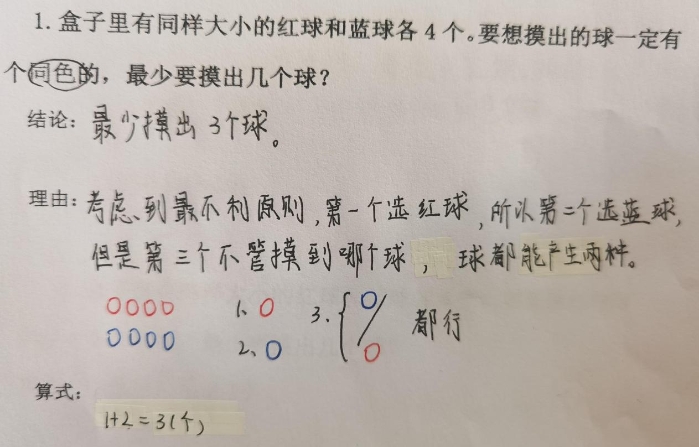 1. 盒子里有同样大小的红球和蓝球各 4 个。要想摸出的球一定有
个同色的，最少要摸出几个球？
结论：最少摸出 3个球。
理由：考虑到最不利原则，第一个选红球，所以第二个选蓝球，
但是第三个不管摸到哪个球，球都能产生两种。
1、
2、
3、
都行
算式：
1+2=3(个)